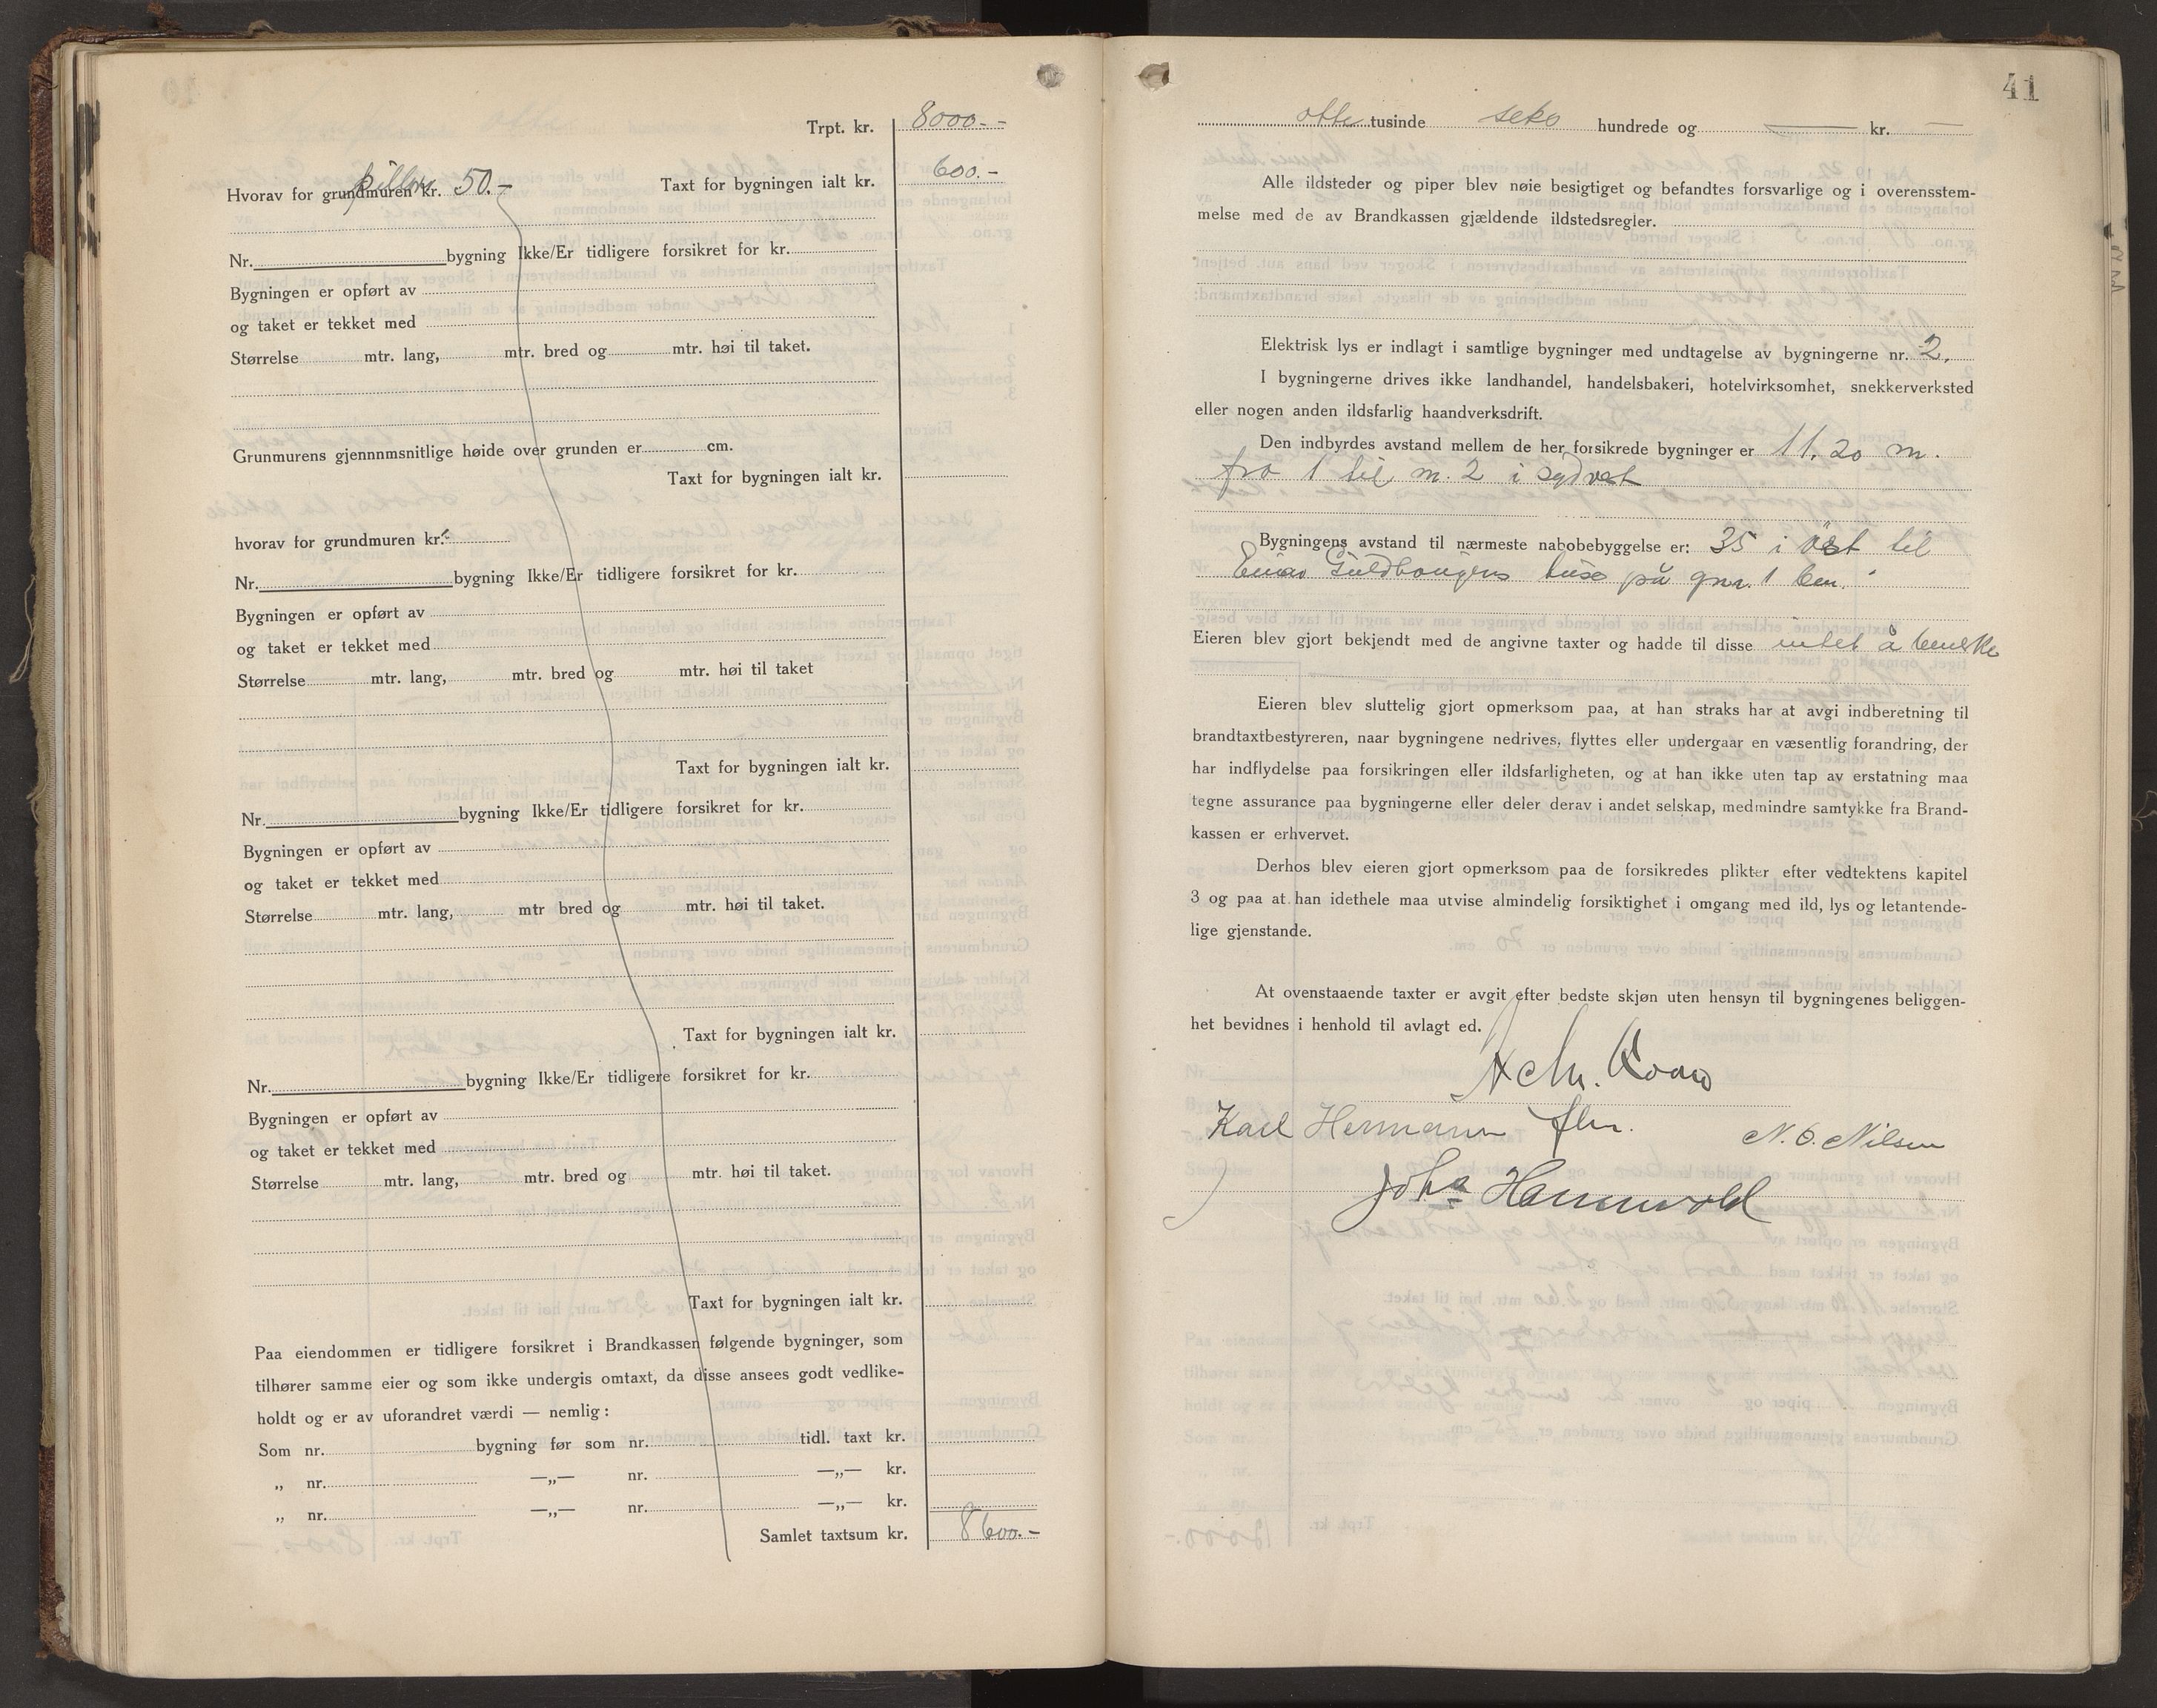 Trpt. kr. 8000.-
Hvorav for grundmuren kr. 50.- Taxt for bygningen ialt kr. 600.-
Nr. bygning Ikke/Er tidligere forsikret for kr.
Bygningen er opført av
og taket er tekket med
Størrelse mtr. lang, mtr. bred og mtr. høi til taket.
Grunmurens gjennnmsnitlige høide over grunden er cm.
Taxt for bygningen ialt kr.
hvorav for grundmuren kr.
Nr. bygning Ikke/Er tidligere forsikret for kr.
Bygningen er opført av
og taket er tekket med
Størrelse mtr. lang, mtr. bred og mtr. høi til taket
Taxt for bygningen ialt kr.
Nr. bygning Ikke/Er tidligere forsikret for kr.
Bygningen er opført av
og taket er tekket med
Størrelse mtr. lang, mtr bred og mtr. høi til taket.
Taxt for bygningen ialt kr.
Nr. bygning Ikke/Er tidligere forsikret for kr.
Bygningen er opført av
og taket er tekket med
Størrelse mtr. lang, mtr. bred og mtr. høi til taket.
Taxt for bygningen ialt kr.
Paa eiendommen er tidligere forsikret i Brandkassen følgende bygninger, som
tilhører samme eier og som ikke undergis omtaxt, da disse ansees godt vedlike-
holdt og er av uforandret værdi — nemlig:
Som nr. bygning før som nr. tidl. taxt kr.
„ nr. —„— nr. —„— kr.
„ nr. —„— nr. —„— kr.
Samlet taxtsum kr. 8600.-
41
otte tusinde seks hundrede og — kr. —
Alle ildsteder og piper blev nøie besigtiget og befandtes forsvarlige og i overensstem-
melse med de av Brandkassen gjældende ildstedsregler.
Elektrisk lys er indlagt i samtlige bygninger med undtagelse av bygningerne nr. 2.
I bygningerne drives ikke landhandel, handelsbakeri, hotelvirksomhet, snekkerverksted
eller nogen anden ildsfarlig haandverksdrift.
Den indbyrdes avstand mellem de her forsikrede bygninger er 11,20 m.
fra 1 til nr. 2 i sydvest
Bygningens avstand til nærmeste nabobebyggelse er: 35 i øst til
Einar Guldhaugens huse på gnr. 1
Eieren blev gjort bekjendt med de angivne taxter og hadde til disse intet å bemerke
Eieren blev sluttelig gjort opmerksom paa, at han straks har at avgi indberetning til
brandtaxtbestyreren, naar bygningene nedrives, flyttes eller undergaar en væsentlig forandring, der
har indflydelse paa forsikringen eller ildsfarligheten, og at han ikke uten tap av erstatning maa
tegne assurance paa bygningerne eller deler derav i andet selskap, medmindre samtykke fra Brand-
kassen er erhvervet.
Derhos blev eieren gjort opmerksom paa de forsikredes plikter efter vedtektens kapitel
3 og paa at han idethele maa utvise almindelig forsiktighet i omgang med ild, lys og letantende-
lige gjenstande.
At ovenstaaende taxter er avgit efter bedste skjøn uten hensyn til bygningenes beliggen-
het bevidnes i henhold til avlagt ed.
Karl Hermann N. O. Nilsen
Johs Hannevold